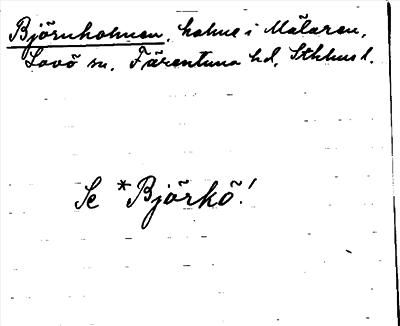 Björnholmen, holme i Mälaren,
Lovö sn. Färentuna hd, Sthlms l.
Se *Björkö!